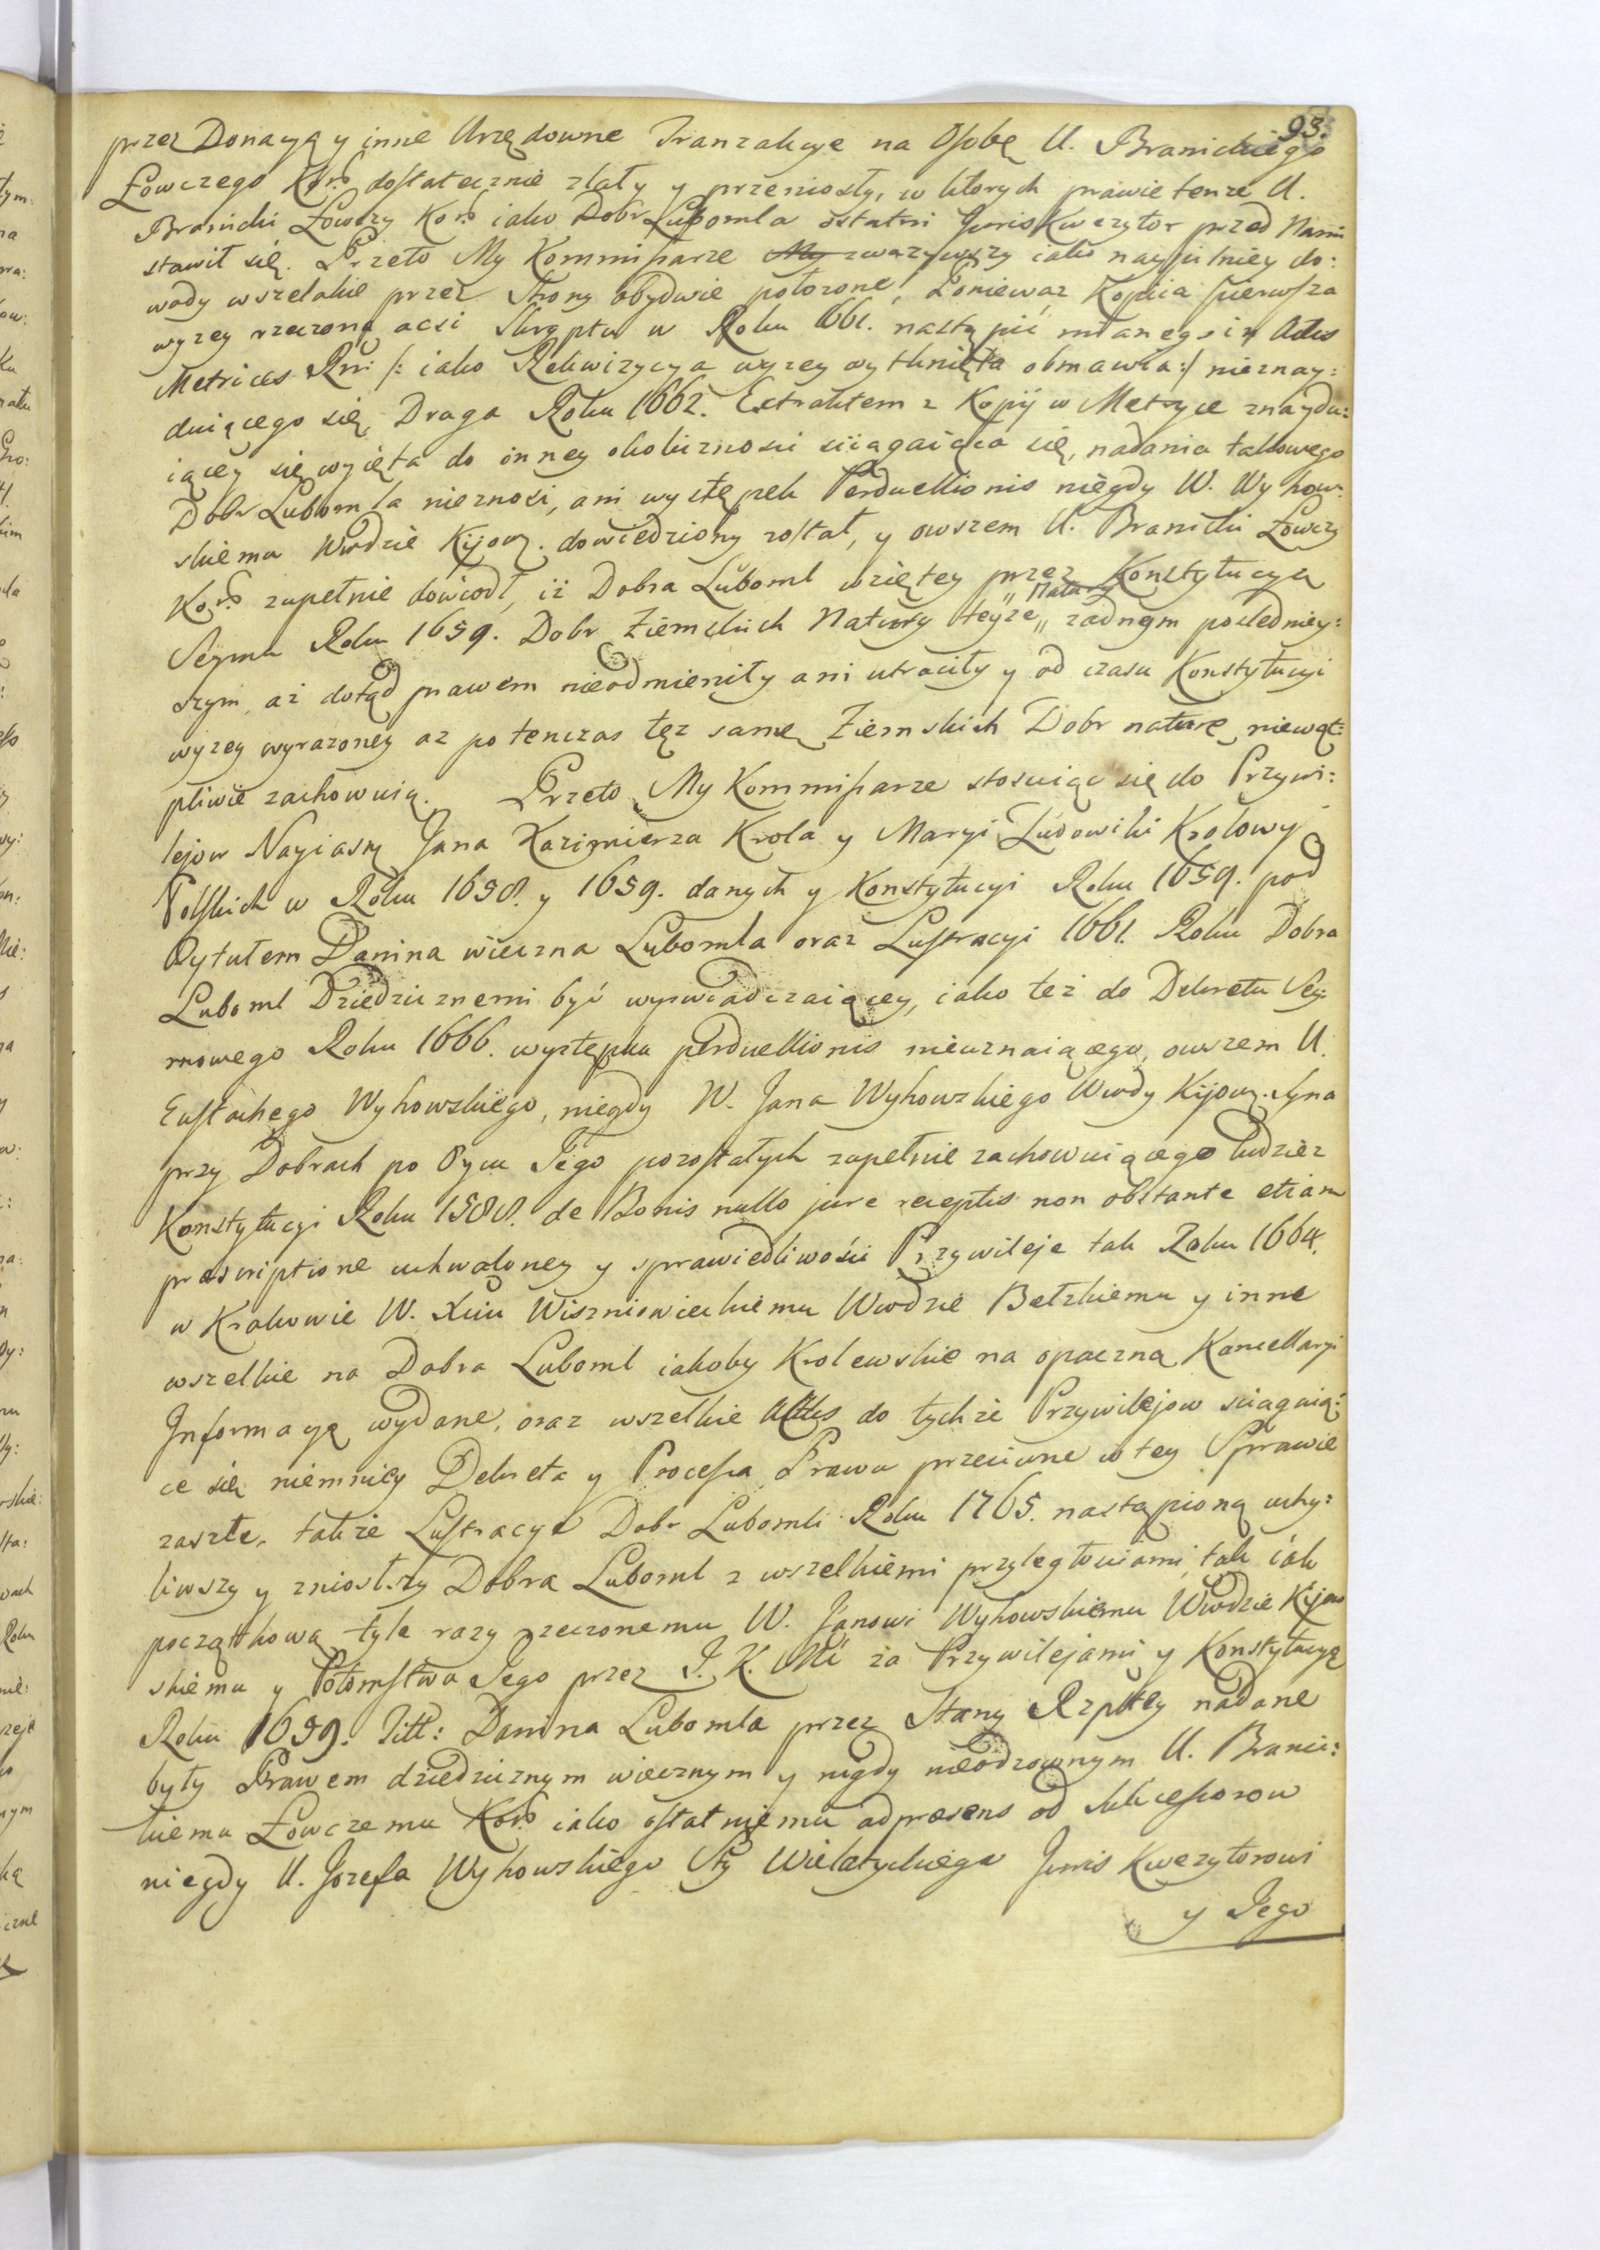 93.
przez Donacyą y inne Urzędowne Tranzakcye na Osobę U. Branickiego
Łowczego Kor̃o dostatecznie zlały y przeniosły, w ktorych prawie tenze U.
Branicki Łowczy Kor̃o iako Dobr Lubomla ostatni Juris Kwezytor przed Nami
stawił się. Przeto My Kommissarze My zwazywszy iako naypilniey do:
wody wszelakie przez Strony obydwie połozone, Poniewaz Kopia pierwsza
wyzey rzeczoną acsi Skryptu w Roku 1661. nastąpić mianego in Actis
Metrices Rni /: iako Rekwizycya wyzey wytknięta obmawia :/ nieznay:
duiącego się, Druga Roku 1662. Extraktem z Kopij w Metryce znaydu:
iącey się wyięta do inney okolicznosci sciągaiąca się, nadania takowego
Dobr Lubomla nieznosi, ani występek Perduellionis niegdy W. Wyhow:
skiemu Wwdzie Kijow. dowiedziony został, y owszem U. Branicki Łowczy
Kor̃o zupełnie dowiodł, iż Dobra Luboml wziętey przez Konstytucyą
Seymu Roku 1659. Dobr Ziemskich Natury teyze „Natury„ zadnym poslednieу:
szym, aż dotąd prawem nieodmieniły ani utraciły y od czasu Konstytucyi
wyzey wyrazoney az po tenczas tęz samę Ziemskich Dobr naturę niewąt:
pliwie zachowuią. Przeto My Kommissarze stosuiąc się do Przywi:
lejow Nayiasn Jana Kazimierza Krola y Maryi Ludowiki Krolowy
Polskich w Roku 1658. y 1659. danych y Konstytucyi Roku 1659. pod
Tytułem Danina wieczna Lubomla oraz Lustracyi 1661. Roku Dobra
Luboml Dziedzicznemi być wyswiadczaiącey, iako też do Dekretu Sey:
mowego Roku 1666. występku perduellionis nieuznaiącego, owszem U.
Eustachego Wyhowskiego, niegdy W. Jana Wyhowskiego Wwdy Kijow. Syna
przy Dobrach po Oycu Jego pozostałych zupełnie zachowuiącego tudziez
Konstytucyi Roku 1588. de Bonis nullo jure receptis non obstante etiam
praescriptione uchwaloney y sprawiedliwości Przywileje tak Roku 1664.
w Krakowie W. Xciu Wiszniowieckiemu Wwdzie Bełzkiemu y inne
wszelkie na Dobra Luboml iakoby Krolewskie na opaczną Kancellaryi
Informacyą wydane, oraz wszelkie Actus do tychże Przywilejow sciągaią:
ce się niemniey Dekreta y Processa Prawu przeciwne w tey Sprawie
zaszłe, takze Lustracye Dobr Lubomli Roku 1765. nastąpioną uchy:
liwszy y zniosłszy Dobra Luboml z wszelkiemi przyległościami, tak iak
początkowo tyle razy rzeczonemu W. Janowi Wyhowskiemu Wwdzie Kijow
skiemu y Potomstwu Jego przez J. K. Mć za Przywilejami y Konstytucyą
Roku 1659. Titt: Danina Lubomla przez Stany Rzpltey nadane
były Prawem dziedzicznym wiecznym y nigdy nieodzownym U. Branic:
kiemu Łowczemu Kor̃o iako ostatniemu adpraesens od Sukcessorow
niegdy U. Jozefa Wyhowskiego Sty Wielatyckiego Juris Kwezytorowi
y Jego